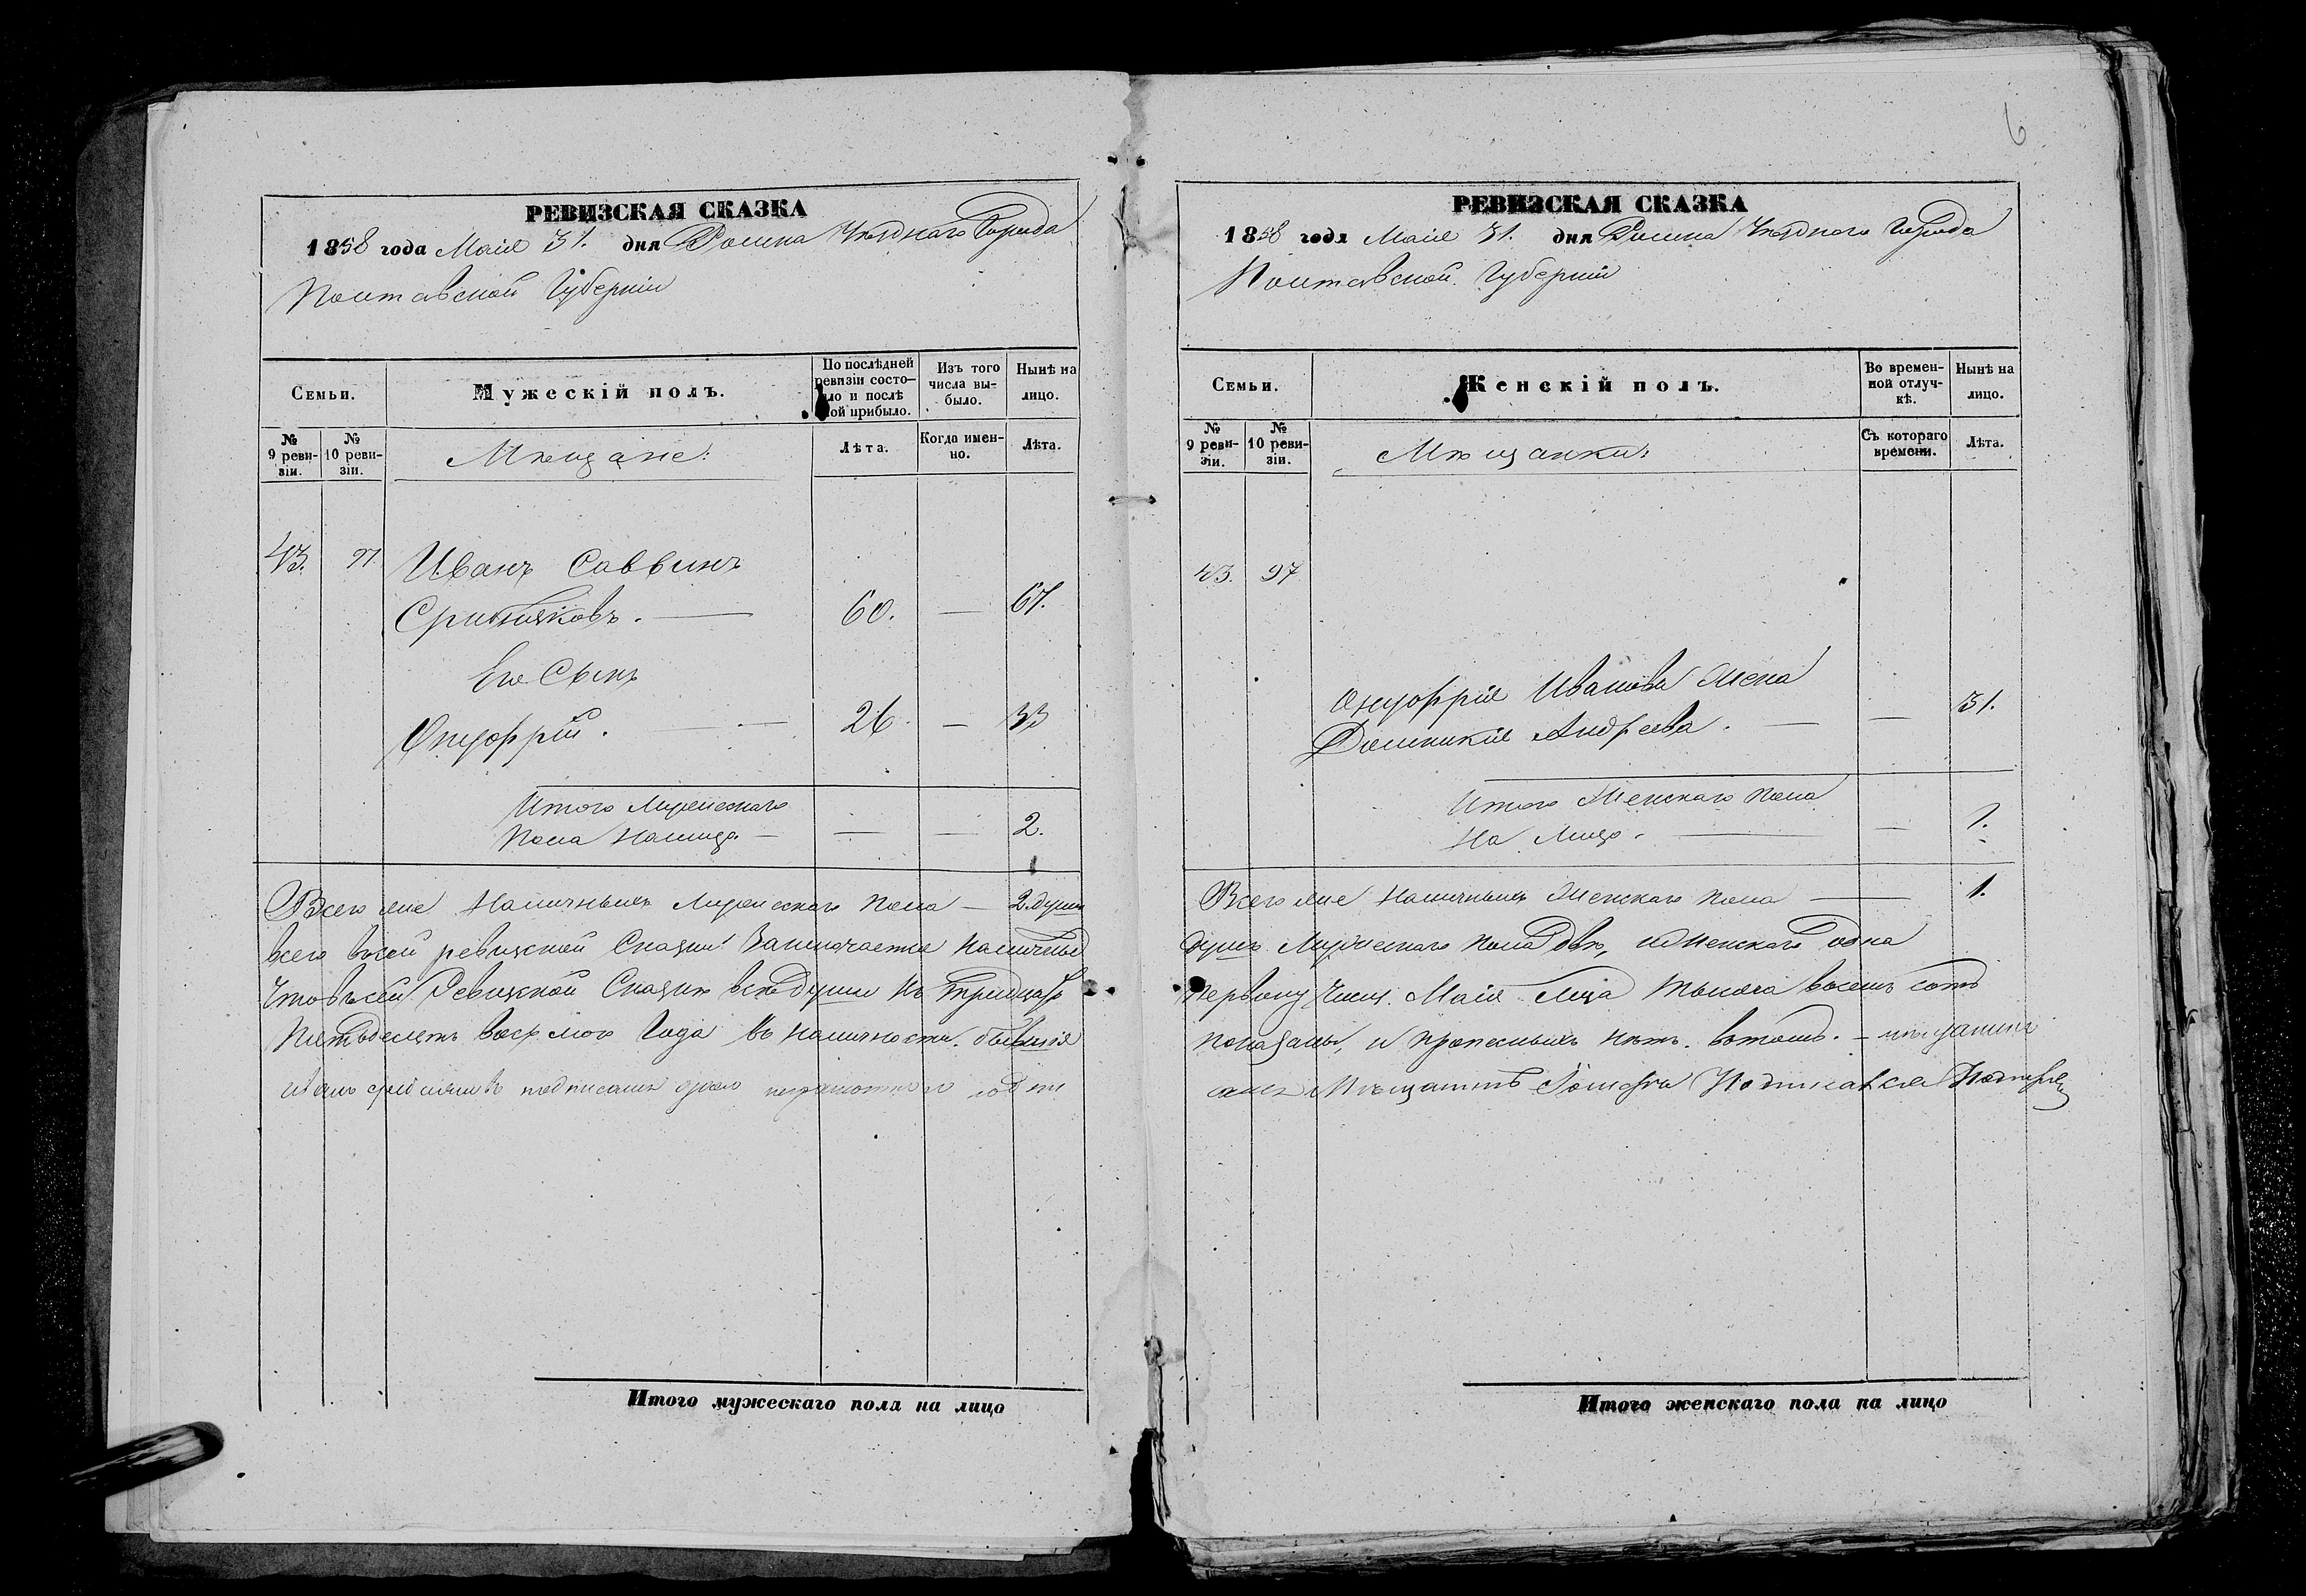 РЕВИЗСКАЯ СКАЗКА
1858 года Маія 31. дня Ромна Уѣзднаго Города
Полтавской Губерніи
Семьи.
Мужескій полъ.
По послѣдней ревизіи состояло и послѣ той прибыло.
Изъ того числа выбыло.
Нынѣ на лицо.
№ 9 ревизіи.
№ 10 ревизіи.
Мѣщане:
Лѣта.
Когда именно.
Лѣта.
43. 97. Иванъ Саввинъ
60. — 67.
Его Сынъ
Онуфрій. — 26. — 33
Итого Мужескаго
Пола Налицо. — — — 2.
Всего же Наличныхъ Мужескаго пола — 2. души
всего въ сей ревизской Сказки Заключается Наличныхъ
Что въ сей Ревизской Сказкѣ всѣ души къ
Пятьдесятъ восьмого Года въ наличности бывшія
РЕВИЗСКАЯ СКАЗКА
1858 года Маія 31. дня Ромна Уѣзднаго Города
Полтавской Губерніи
Семьи.
Женскій полъ.
Во временной отлучкѣ.
Нынѣ на лицо.
№ 9 ревизіи.
№ 10 ревизіи.
Мѣщанки:
Съ котораго времени.
Лѣта.
43. 97
Онуфрія Иванова Жена
Домникія Андреева. — — 31.
Итого Женскаго пола
На Лицо. — — 1.
Всего же Наличныхъ Женскаго пола — 1.
душъ Мужескаго пола двѣ, и Женскаго одна
первому Числу Маія Тысяча восемь сотъ
показаны, и прописныхъ нѣтъ. въ томъ. — мѣщанинъ
Мѣщанинъ
Итого мужескаго пола на лицо
Итого женскаго пола на лицо
6